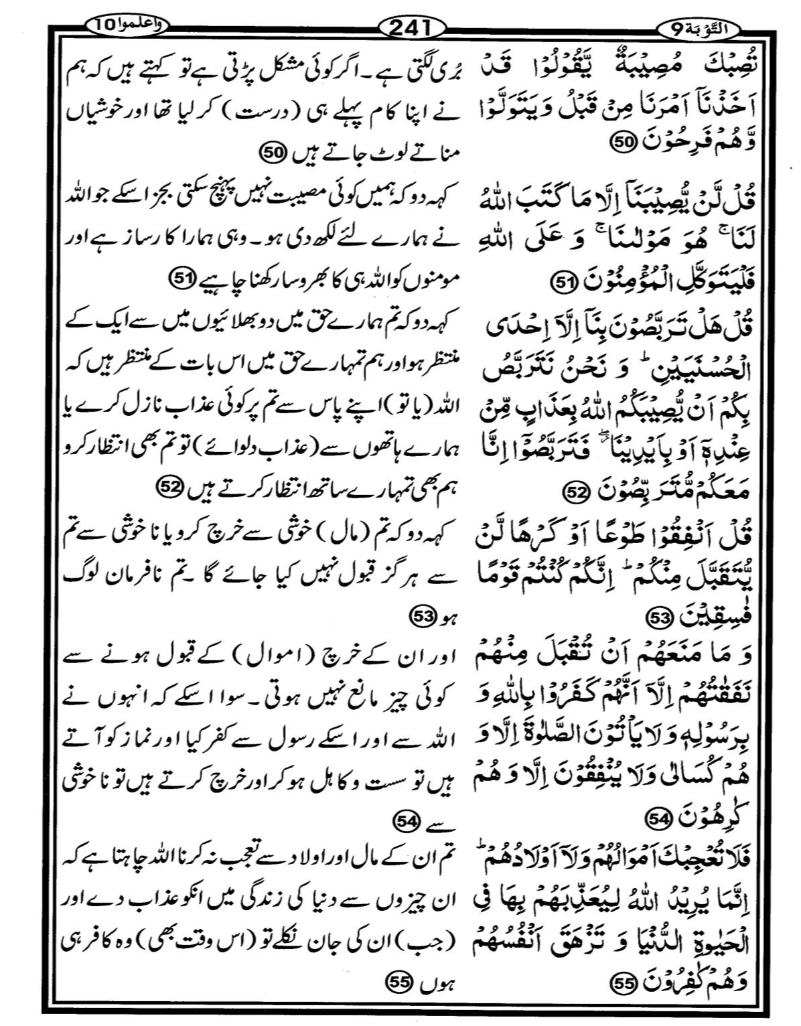 التَّوْبَة 9
241
واعلموا 10
تُصِبْكَ مُصِيْبَةٌ يَّقُوْلُوْا قَدْ
اَخَذْنَاۤ اَمْرَنَا مِنْ قَبْلُ وَيَتَوَلَّوْا
وَّهُمْ فَرِحُوْنَ 50
قُلْ لَّنْ يُّصِيْبَنَاۤ اِلَّا مَا كَتَبَ اللّٰهُ
لَنَا ۚ هُوَ مَوْلٰىنَا ۚ وَ عَلَى اللّٰهِ
فَلْيَتَوَكَّلِ الْمُؤْمِنُوْنَ 51
قُلْ هَلْ تَرَبَّصُوْنَ بِنَاۤ اِلَّاۤ اِحْدَى
الْحُسْنَيَيْنِ ؕ وَ نَحْنُ نَتَرَبَّصُ
بِكُمْ اَنْ يُّصِيْبَكُمُ اللّٰهُ بِعَذَابٍ مِّنْ
عِنْدِهٖۤ اَوْ بِاَيْدِيْنَا ۖ فَتَرَبَّصُوْۤا اِنَّا
مَعَكُمْ مُّتَرَبِّصُوْنَ 52
قُلْ اَنْفِقُوْا طَوْعًا اَوْ كَرْهًا لَّنْ
يُّتَقَبَّلَ مِنْكُمْ ؕ اِنَّكُمْ كُنْتُمْ قَوْمًا
فٰسِقِيْنَ 53
وَ مَا مَنَعَهُمْ اَنْ تُقْبَلَ مِنْهُمْ
نَفَقٰتُهُمْ اِلَّاۤ اَنَّهُمْ كَفَرُوْا بِاللّٰهِ وَ
بِرَسُوْلِهٖ وَلَا يَاْتُوْنَ الصَّلٰوةَ اِلَّا وَ
هُمْ كُسَالٰى وَلَا يُنْفِقُوْنَ اِلَّا وَ هُمْ
كٰرِهُوْنَ 54
فَلَا تُعْجِبْكَ اَمْوَالُهُمْ وَلَاۤ اَوْلَادُهُمْ ؕ
اِنَّمَا يُرِيْدُ اللّٰهُ لِيُعَذِّبَهُمْ بِهَا فِى
الْحَيٰوةِ الدُّنْيَا وَ تَزْهَقَ اَنْفُسُهُمْ
وَهُمْ كٰفِرُوْنَ 55
بُری لگتی ہے۔ اگر کوئی مشکل پڑتی ہے تو کہتے ہیں کہ ہم
نے اپنا کام پہلے ہی (درست) کر لیا تھا اور خوشیاں
مناتے لوٹ جاتے ہیں 50
کہہ دو کہ ہمیں کوئی مصیبت نہیں پہنچ سکتی بجز اسکے جو اللہ
نے ہمارے لئے لکھ دی ہو۔ وہی ہمارا کارساز ہے اور
مومنوں کو اللہ ہی کا بھروسا رکھنا چاہیے 51
کہہ دو کہ تم ہمارے حق میں دو بھلائیوں میں سے ایک کے
منتظر ہو اور ہم تمہارے حق میں اس بات کے منتظر ہیں کہ
اللہ (یا تو) اپنے پاس سے تم پر کوئی عذاب نازل کرے یا
ہمارے ہاتھوں سے (عذاب دلوائے) تو تم بھی انتظار کرو
ہم بھی تمہارے ساتھ انتظار کرتے ہیں 52
کہہ دو کہ تم (مال) خوشی سے خرچ کرو یا ناخوشی سے تم
سے ہرگز قبول نہیں کیا جائے گا ۔تم نافرمان لوگ
ہو 53
اور ان کے خرچ (اموال) کے قبول ہونے سے
کوئی چیز مانع نہیں ہوتی ۔ سوا اسکے کہ انہوں نے
اللہ سے اور اسکے رسول سے کفر کیا اور نماز کو آتے
ہیں تو سست و کاہل ہو کر اور خرچ کرتے ہیں تو ناخوشی
سے 54
تم ان کے مال اور اولاد سے تعجب نہ کرنا اللہ چاہتا ہے کہ
ان چیزوں سے دنیا کی زندگی میں انکو عذاب دے اور
(جب) ان کی جان نکلے تو (اس وقت بھی) وہ کافر ہی
ہوں 55